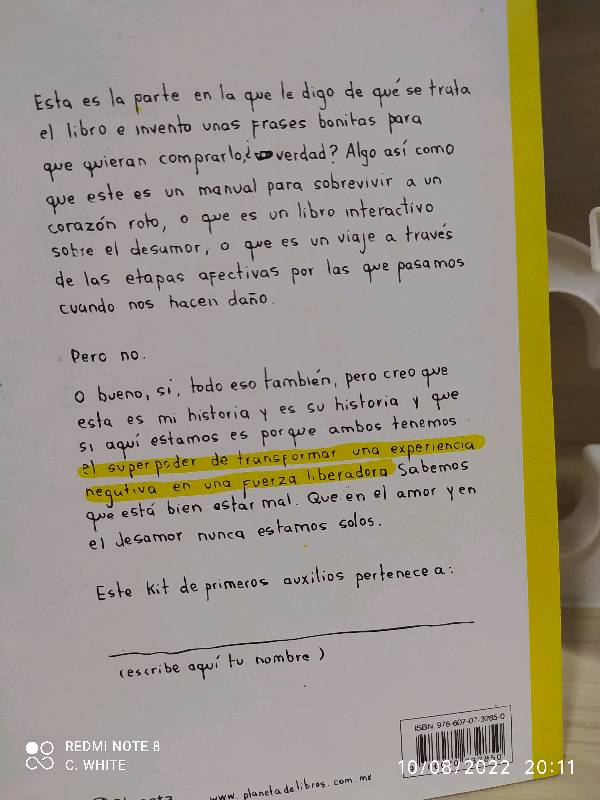 Esta es la parte en la que le digo de qué se trata
el libro e invento unas frases bonitas para
que quieran comprarlo, ¿verdad? Algo así como
que este es un manual para sobrevivir a un
corazón roto, o que es un libro interactivo
sobre el desamor, o que es un viaje a través
de las etapas afectivas por las que pasamos
cuando nos hacen daño.
Pero no.
O bueno, sí, todo eso también, pero creo que
esta es mi historia y es su historia y que
si aquí estamos es porque ambos tenemos
el superpoder de transformar una experiencia
negativa en una fuerza liberadora Sabemos
que está bien estar mal. Que en el amor y en
el desamor nunca estamos solos.
Este kit de primeros auxilios pertenece a:
(escribe aquí tu nombre)
ISBN 978-607-07-3285-0
REDMI NOTE 8
C. WHITE
10/08/2022 20:11
www.planetadelibros.com.mx